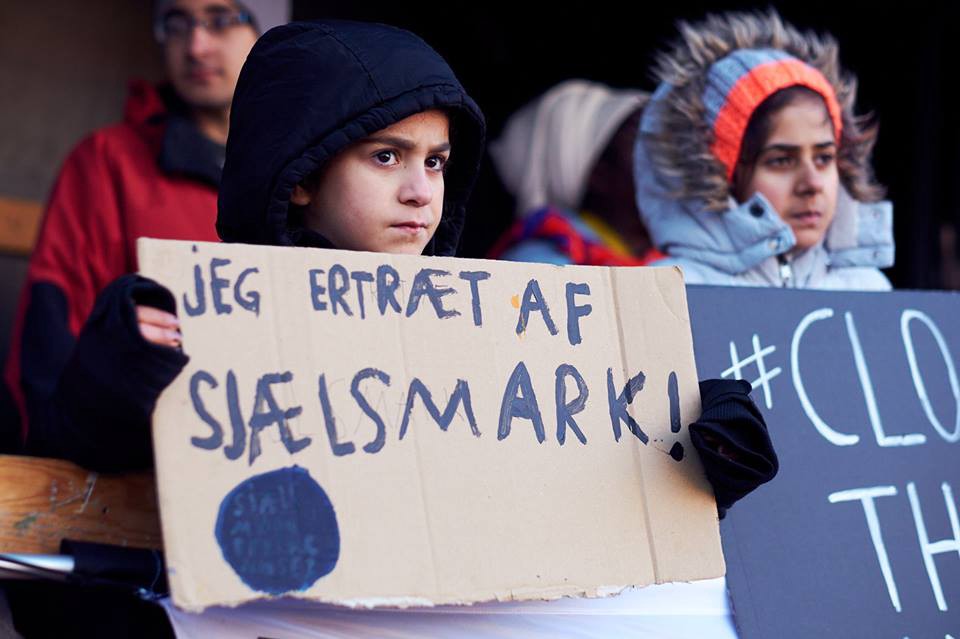 JEG ERTRÆT AF
SJÆLSMARK!
#CLO
TH